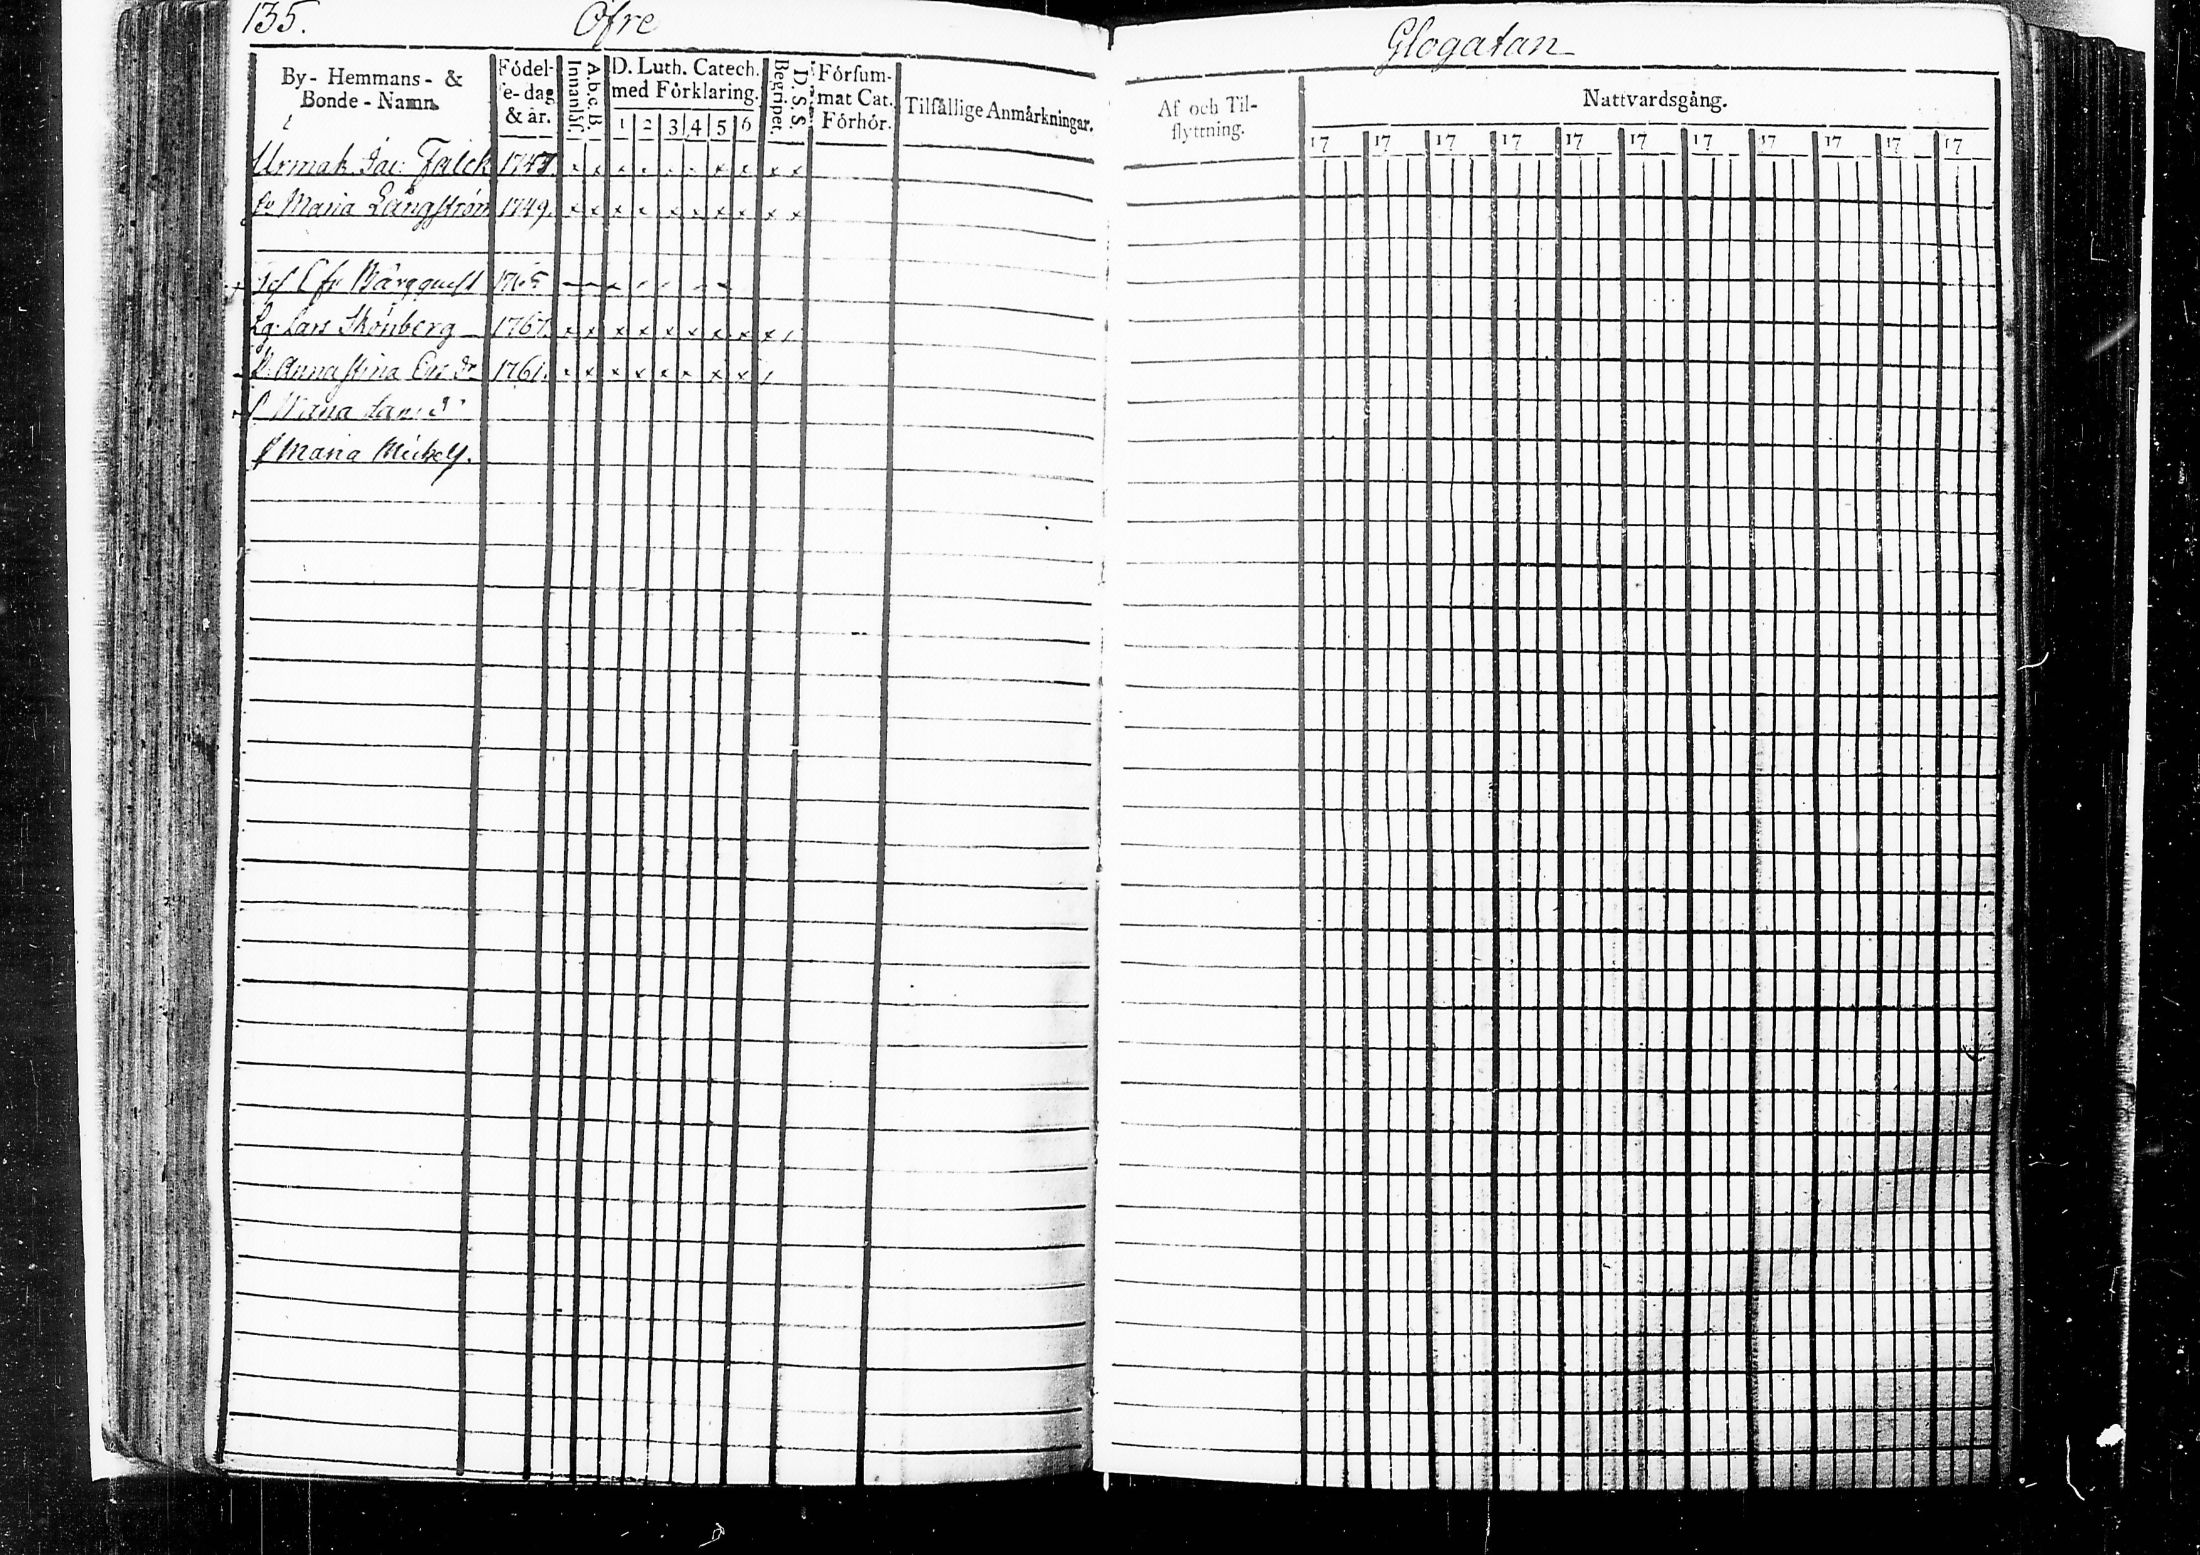 135. Öfre
By- Hemmans- &
Bonde-Namn.
Födel-
se-dag
& år.
Innanläs.
A.b.c.B.
D. Luth. Catech.
med Förklaring.
1 2 3 4 5 6
Begripet.
D. S. S.
Försum-
mat Cat.
Förhör.
Tilfällige Anmärkningar.
Urmak. Jac: Falck 1747.
Maria Långström 1749. x x x x x x x x x x
1765
Lg. Lars Skönberg 1767. x x x x x x x x x
Anna Stina 1761. x x x x x x x x
Maria
Maria Michels.
Glogatan
Af och Til-
flyttning.
Nattvardsgång.
17 17 17 17 17 17 17 17 17 17 17